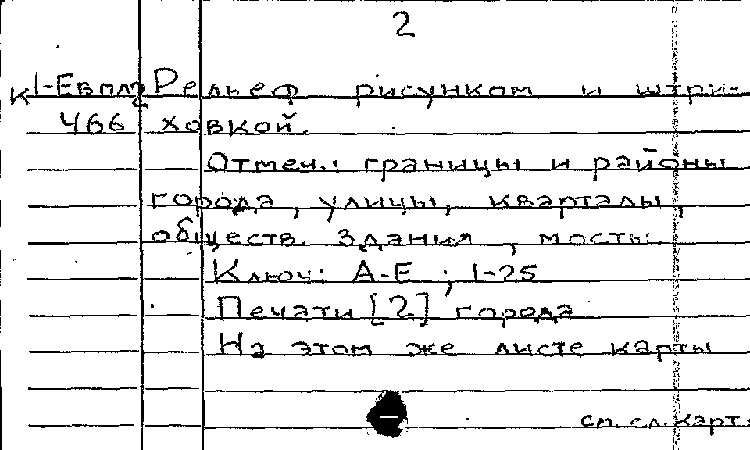 2
К1-Евпл2 Рельеф рисунком и штри-
466 ховкой.
Отмеч.: границы и районы
города, улицы, кварталы,
обществ. здания, мосты.
Ключ: А-Е ; 1-25
Печати [2] города
На этом же листе карты
см. сл. карт.